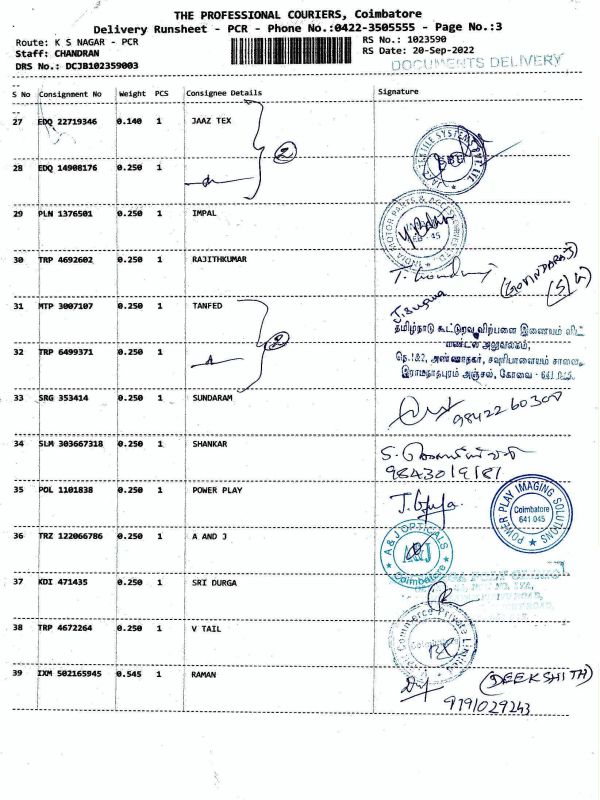 THE PROFESSIONAL COURIERS, Coimbatore
Delivery Runsheet - PCR - Phone No.:0422-3505555 - Page No.:3
Route: K S NAGAR - PCR
RS No.: 1023590
Staff: CHANDRAN
RS Date: 20-Sep-2022
DRS No.: DCJB102359003
DOCUMENTS DELIVERY
S No Consignment No Weight PCS Consignee Details Signature
27 EDQ 22719346 0.140 1 JAAZ TEX
2
28 EDQ 14908176 0.250 1
29 PLN 1376501 0.250 1 IMPAL
30 TRP 4692602 0.250 1 RAJITHKUMAR
(GOVINDARAJ)
31 MTP 3007107 0.250 1 TANFED
2
தமிழ்நாடு கூட்டுறவு விற்பனை இணையம்
மண்டல அலுவலகம்,
32 TRP 6499371 0.250 1
நெ.182, அண்ணாநகர், சவுரிபாளையம் சாலை,
இராமநாதபுரம் அஞ்சல், கோவை - 641 045.
33 SRG 353414 0.250 1 SUNDARAM
9842260300
34 SLM 303667318 0.250 1 SHANKAR
9843019181
35 POL 1101838 0.250 1 POWER PLAY
POWER PLAY IMAGING SOLUTIONS
Coimbatore
641 045
36 TRZ 122066786 0.250 1 A AND J
A & J OPTICALS
A&J
Coimbatore
37 KDI 471435 0.250 1 SRI DURGA
38 TRP 4672264 0.250 1 V TAIL
Commerce Private Limited
Coimbatore
39 IXM 502165945 0.545 1 RAMAN
(DEEKSHITH)
9791029243